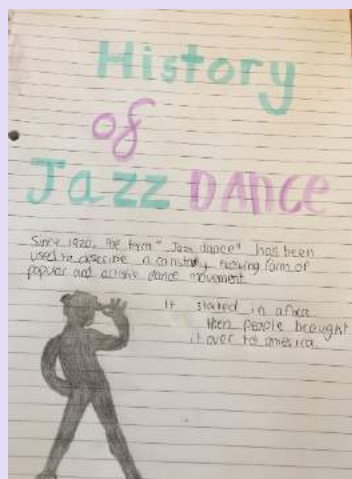 History
of
Jazz DANCE
Since 1920, the term "Jazz dance" has been
used to describe a constatly form of
popular and artistic dance movement
It started in africa
then people brought
it over to america